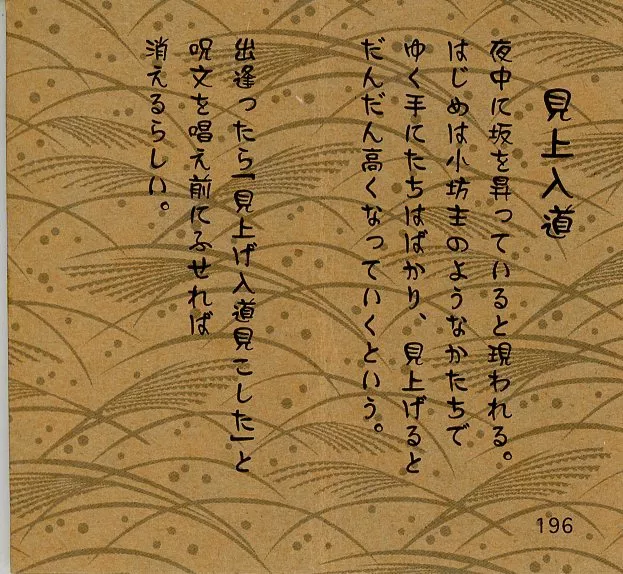 見上入道
夜中に坂を昇っていると現われる。
はじめは小坊主のようなかたちで
ゆく手にたちはばかり、見上げると
だんだん高くなっていくという。
出逢ったら「見上げ入道見こした」と
呪文を唱え前にふせれば
消えるらしい。
196